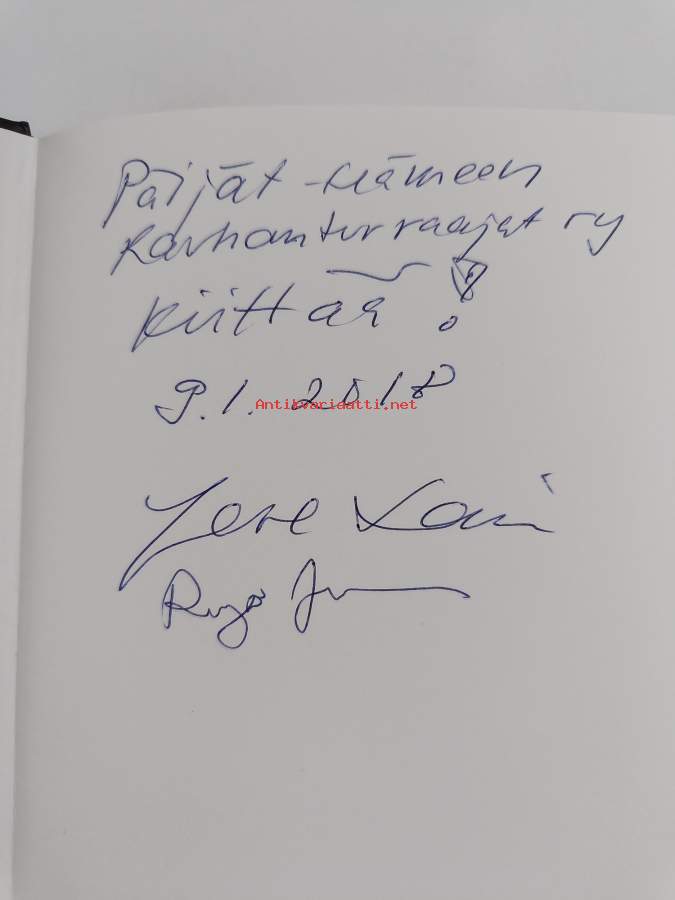 Päijät-Hämeen
Rauhanturvaajat ry
kiittää!
9.1.2018
Antikvaridatti.net
Jere